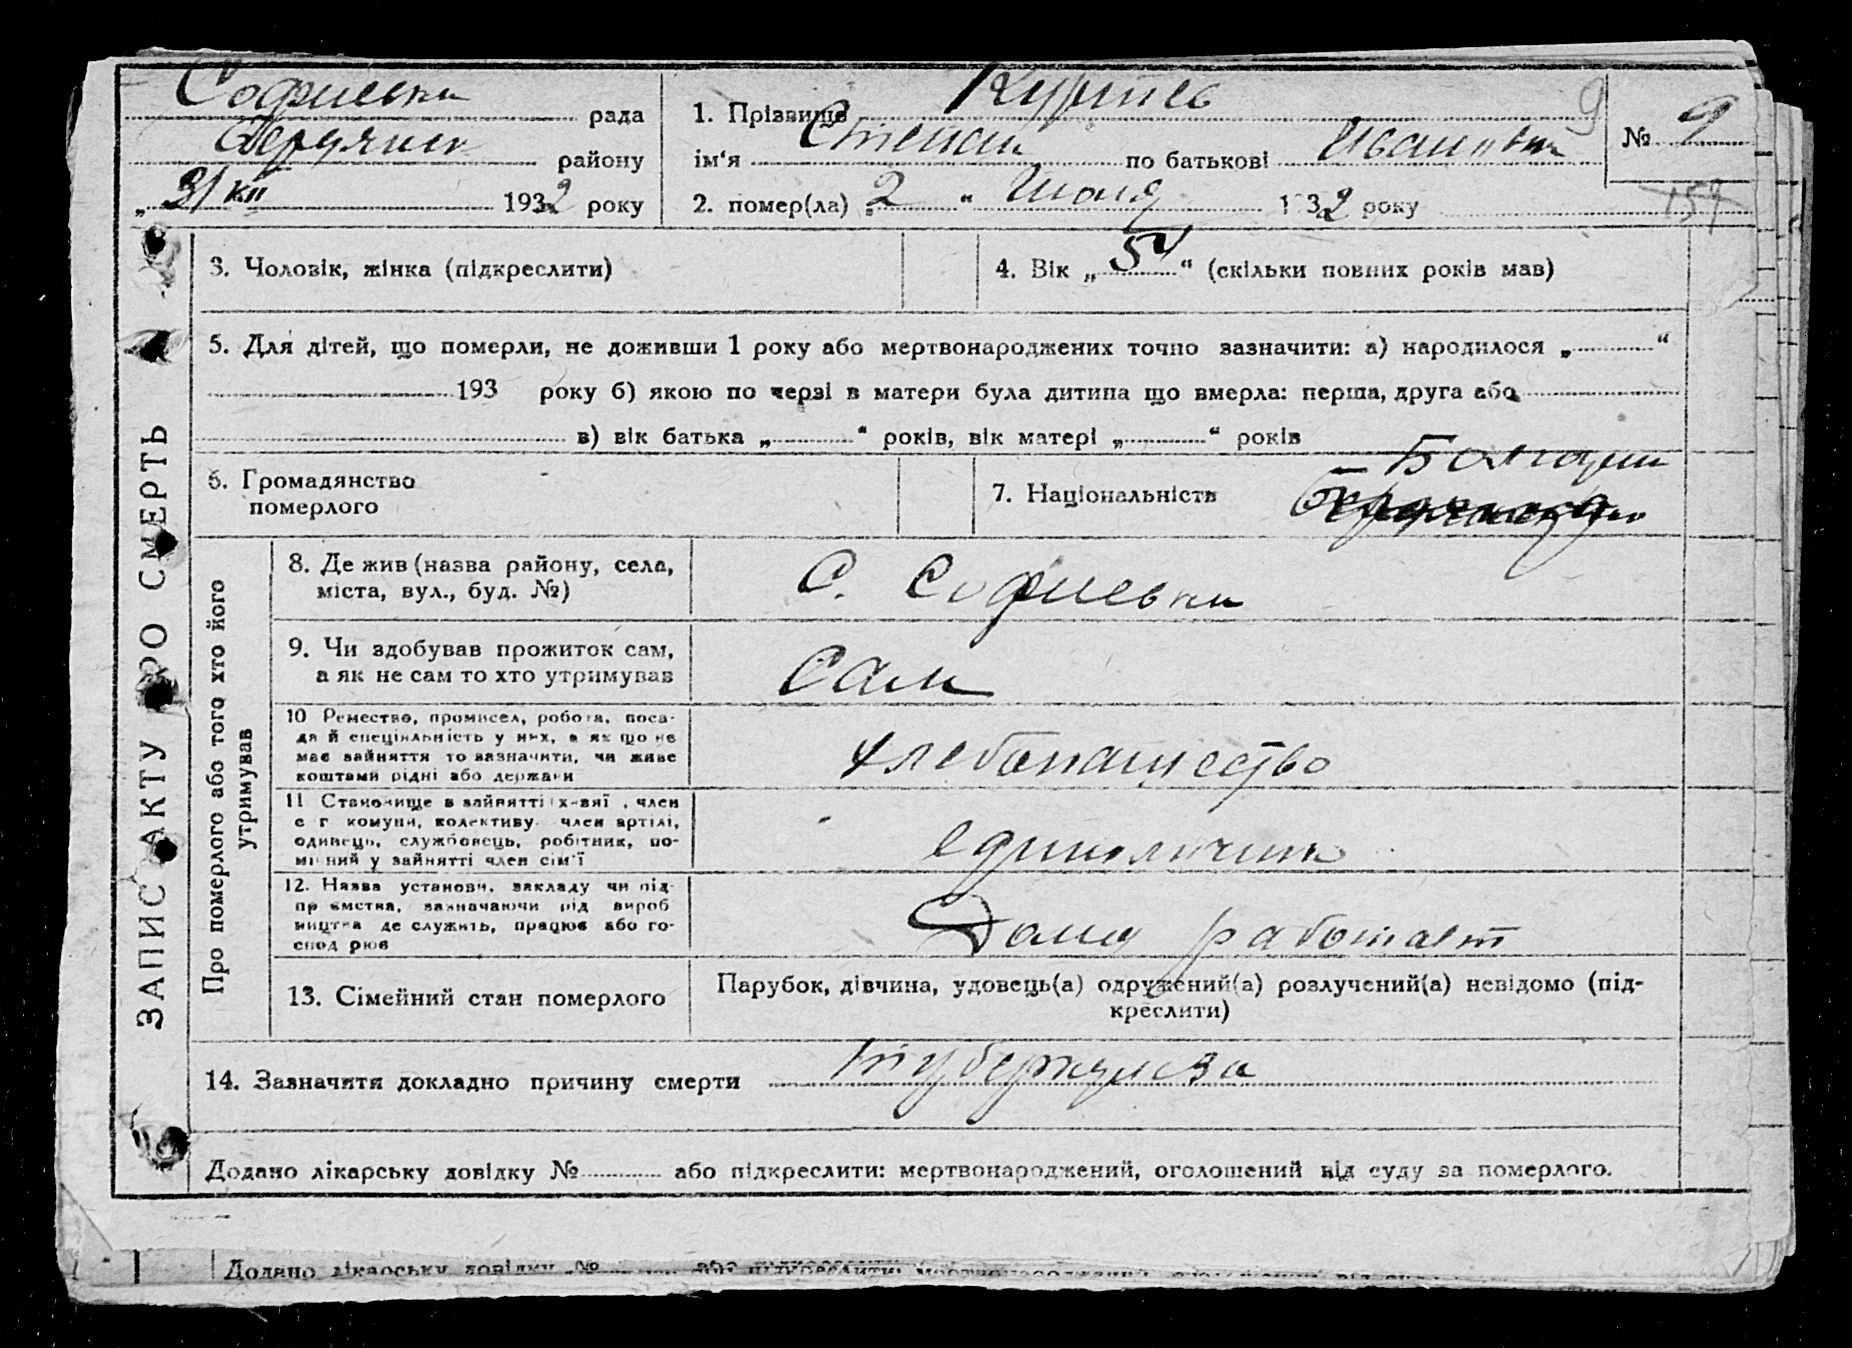 Софиевка рада
Бердянск району
„ 31 XII 1932 року
1. Прізвище Куртев
ім'я Степан по батькові Иванович
2. помер(ла) „ 2 “ Июля 1932 року
№ 9
9
159
3. Чоловік, жінка (підкреслити)
4. Вік „ 54 “ (скільки повних років мав)
5. Для дітей, що померли, не доживши 1 року або мертвонароджених точно зазначити: а) народилося „ “
193 року б) якою по черзі в матери була дитина що вмерла: перша, друга або
в) вік батька „ “ років, вік матері „ “ років
6. Громадянство
померлого
7. Національність Болгарин
ЗАПИС АКТУ ПРО СМЕРТЬ
Про померлого або того хто його
утримував
8. Де жив (назва району, села,
міста, вул., буд. №)
С. Софиевки
9. Чи здобував прожиток сам,
а як не сам то хто утримував
Сам
10 Ремество, промисел, робота, поса-
да й спеціяльність у них, а як що не
має зайняття то зазначити, чи живе
коштами рідні або держави
хлебопашество
11 Становище в зайнятті: член
с г комуни, колективу член артілі,
одинець, службовець, робітник, по-
мічний у зайнятті член сім'ї
единоличник
12. Назва установи, закладу чи під-
приємства, зазначаючи від вироб
ництва де служить, працює або го-
спод рює
Дома работает
13. Сімейний стан померлого
Парубок, дівчина, удовець(а) одружений(а) розлучений(а) невідомо (під-
креслити)
14. Зазначити докладно причину смерти туберкулеза
Додано лікарську довідку № або підкреслити: мертвонароджений, оголошений від суду за померлого.
Додано лікарську довідку № або підкреслити: мертвонароджений,